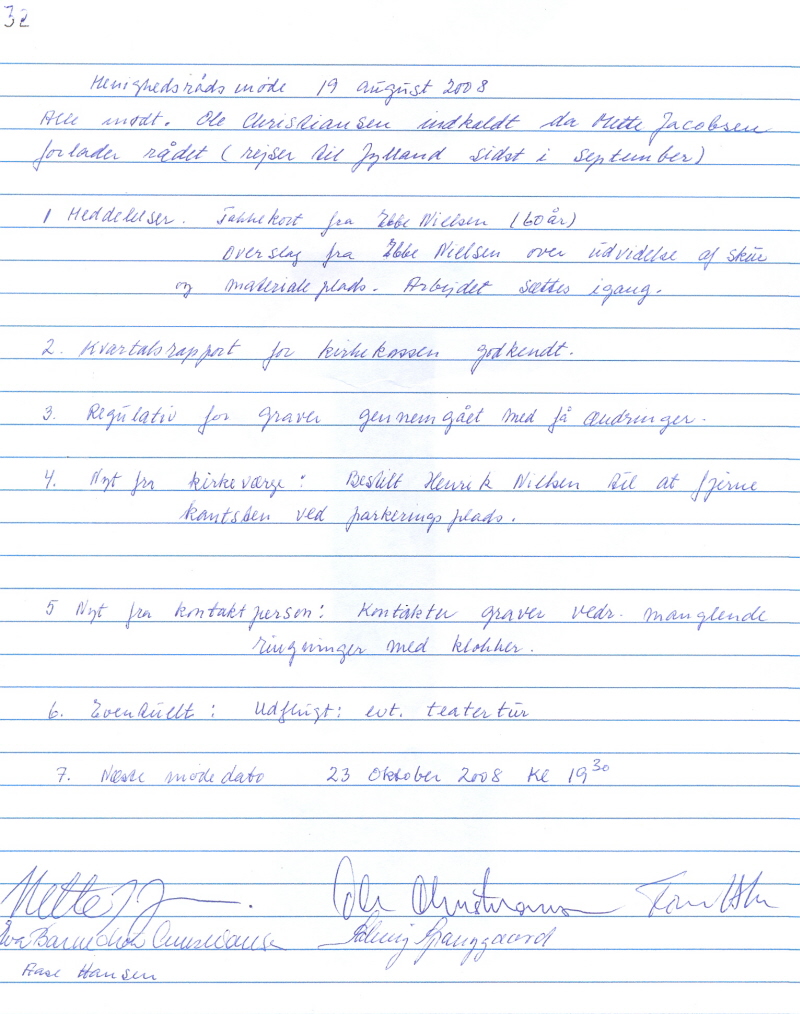 32
Menighedsråds møde 19 august 2008
Alle mødt. Ole Christiansen indkaldt da Mette Jacobsen
forlader rådet (rejser til Jylland sidst i september)
1 Meddelelser. Takkekort fra Ebbe Nielsen (60 år)
Overslag fra Ebbe Nielsen over udvidelse af skur
og materialeplads. Arbejdet sættes igang.
2. Kvartalsrapport for kirkekassen godkendt.
3. Regulativ for graver gennemgået med få ændringer.
4. Nyt fra kirkeværge: Bestilt Henrik Nielsen til at fjerne
kantsten ved parkeringsplads.
5 Nyt fra kontaktperson: Kontakter graver vedr. manglende
ringninger med klokker.
6. Eventuelt: Udflugt: evt. teatertur
7. Næste mødedato 23 Oktober 2008 Kl 19 30
Mette
Ole Christiansen
Eva
Solveig Spanggaard
Aase Hansen